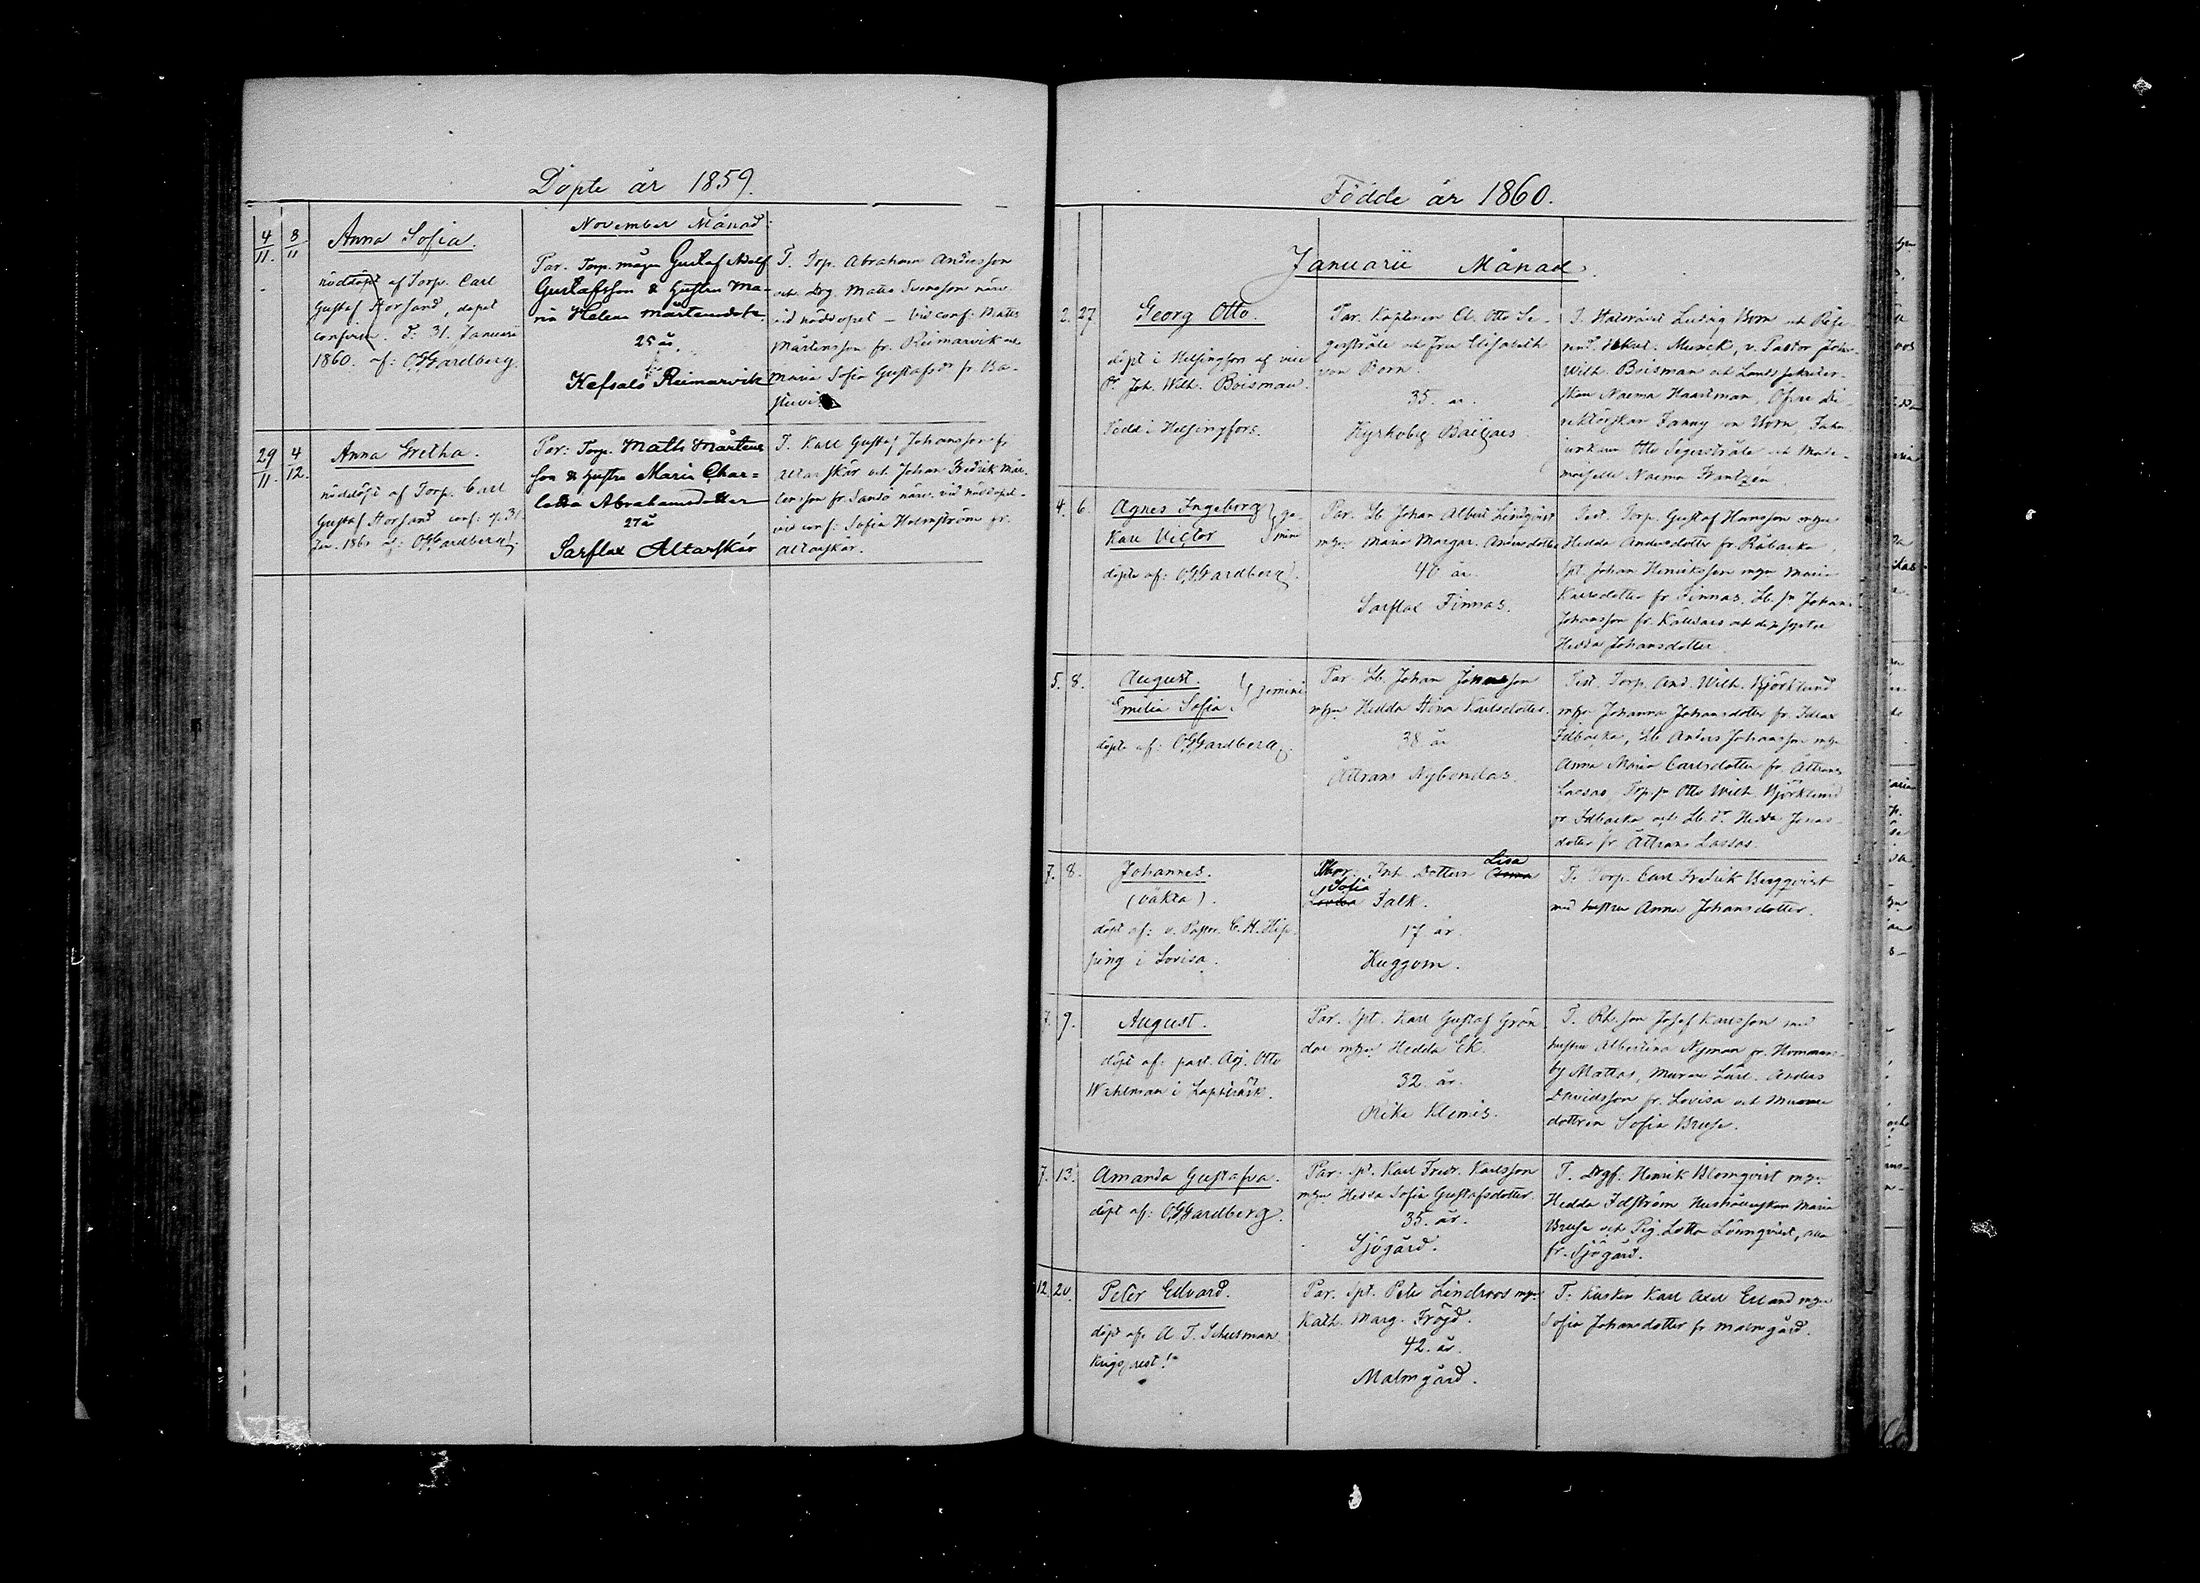 Döpte år 1859.
November Månad.
4/11. 8/11
Anna Sofia.
nöddöpt af Torp. Carl
Gustaf Korsand, dopet
confirm. d: 31. Januarii
1860. af: OGGardberg.
Par. Torp. mågen Gustaf Adolf
Gustafsson & hustru Ma-
ria Helena Mårtensdotr
25 år.
Kefsalö Reimarvik
T. Torp. Abraham Andersson
och Drg. Matts Svensson närv.
vid nöddopet - vid conf: Matts
Mårtensson fr. Reimarvik och
Maria Sofia Gustafsdr fr Ba-
stuvik
29/11. 4/12.
Anna Gretha.
nöddöpt af Torp. Carl
Gustaf Korsand conf: d. 31
Jan. 1860 af: OGGardberg.
Par: Torp. Matts Mårtens
son & hustru Maria Char=
lotta Abrahamsdotter
27 å
Sarflax Altarskär
T. Karl Gustaf Johansson fr
Altarskär och Johan Fredrik Mår-
tensson fr. Sandö närv. vid nöddopet -
vid conf: Sofia Holmström fr.
Altarskär.
Födde år 1860.
Januarii Månad.
2. 27.
Georg Otto.
döpt i Helsingfors af vice
P. Joh. Wilh. Boisman.
Född i Helsingfors.
Par. Kaptenen Cl. Otto Se-
gerstråle och Fru Elisabeth
von Born.
35. år.
Kyrkoby Baggars
T. Hofrådet Ludvig Born och
Munck, v. Pastor Joh.
Wilh. Boisman och
Naema Haartman,
Fanny von Born,
Otto Segerstråle och Made-
moiselle Naema Frantzén.
4. 6.
Agnes Ingeborg } ge-
Karl Victor } mini
döpte af: OGGardberg.
Par. Lb. Johan Albert Lindqvist
m/hu Maria Margar. Andersdotter
40 år.
Sarflax Finnas.
Test. Torp. Gustaf Hansson m/hu
Hedda Andersdotter fr. Råbacka,
Spt. Johan Henriksson m/hu Maria
Karlsdotter fr Finnas, Lb. sn Johan
Johansson fr. Källsars och dess syster
Hedda Johansdotter.
5. 8.
August. } gemini
Emilia Sofia.
döpte af: OGGardberg.
Par Lb. Johan Jonasson
m/hu Hedda Stina Karlsdotter.
38 år
Åttrans Nybondas.
Test. Torp. And. Wilh. Björklund
m/hu Johanna Johansdotter fr.
Idbacka, Lb. Anders Johansson m/hu
Anna Maria Carlsdotter fr. Åttrans
Lassas, Torp. sn Otto Wilh. Björklund
fr Idbacka och Lb. dr Hedda Jonas-
dotter fr Åttrans Lassas.
7. 8.
Johannes.
(oäkta).
döpt af: v. Pastor. C. H. Hip-
ping i Lovisa.
Mor. Inh. Dottern Lisa
Sofia Falk.
17. år.
Kuggom.
T. Torp. Carl Fredrik Bergqvist
med hustru Anna Johansdotter.
7. 9.
August.
döpt af: past. Adj. Otto
Wahlman i Lappträsk.
Par. Spt. Karl Gustaf Grön
dal m/hu Hedda Ek.
32. år.
Rike Klemis.
T. Rh. son Josef Karlsson med
hustru Albertina Nyman fr. Hommans-
by Mattas, Murare Lärl. Anders
Davidsson fr. Lovisa och Murare
dottren Sofia Bruse.
7. 13.
Amanda Gustafva.
döpt af: OGGardberg.
Par. Spt. Karl Fredr. Karlsson
m/hu Hedda Sofia Gustafsdotter
35. år.
Sjögård.
T. Drgf. Henrik Blomqvist m/hu
Hedda Idström Hushållerskan Maria
Bruse och Pig. Lotta Lönnqvist, alla
fr. Sjögård.
12. 20.
Peter Edvard.
döpt af: A. F. Schulman
Krigsprest!
Par. Spt. Peter Lindroos m/hu
Kath. Marg. Fröjd.
42. år.
Malmgård.
T. Kusken Karl Axel Erland m/hu
Sofia Johansdotter fr Malmgård.